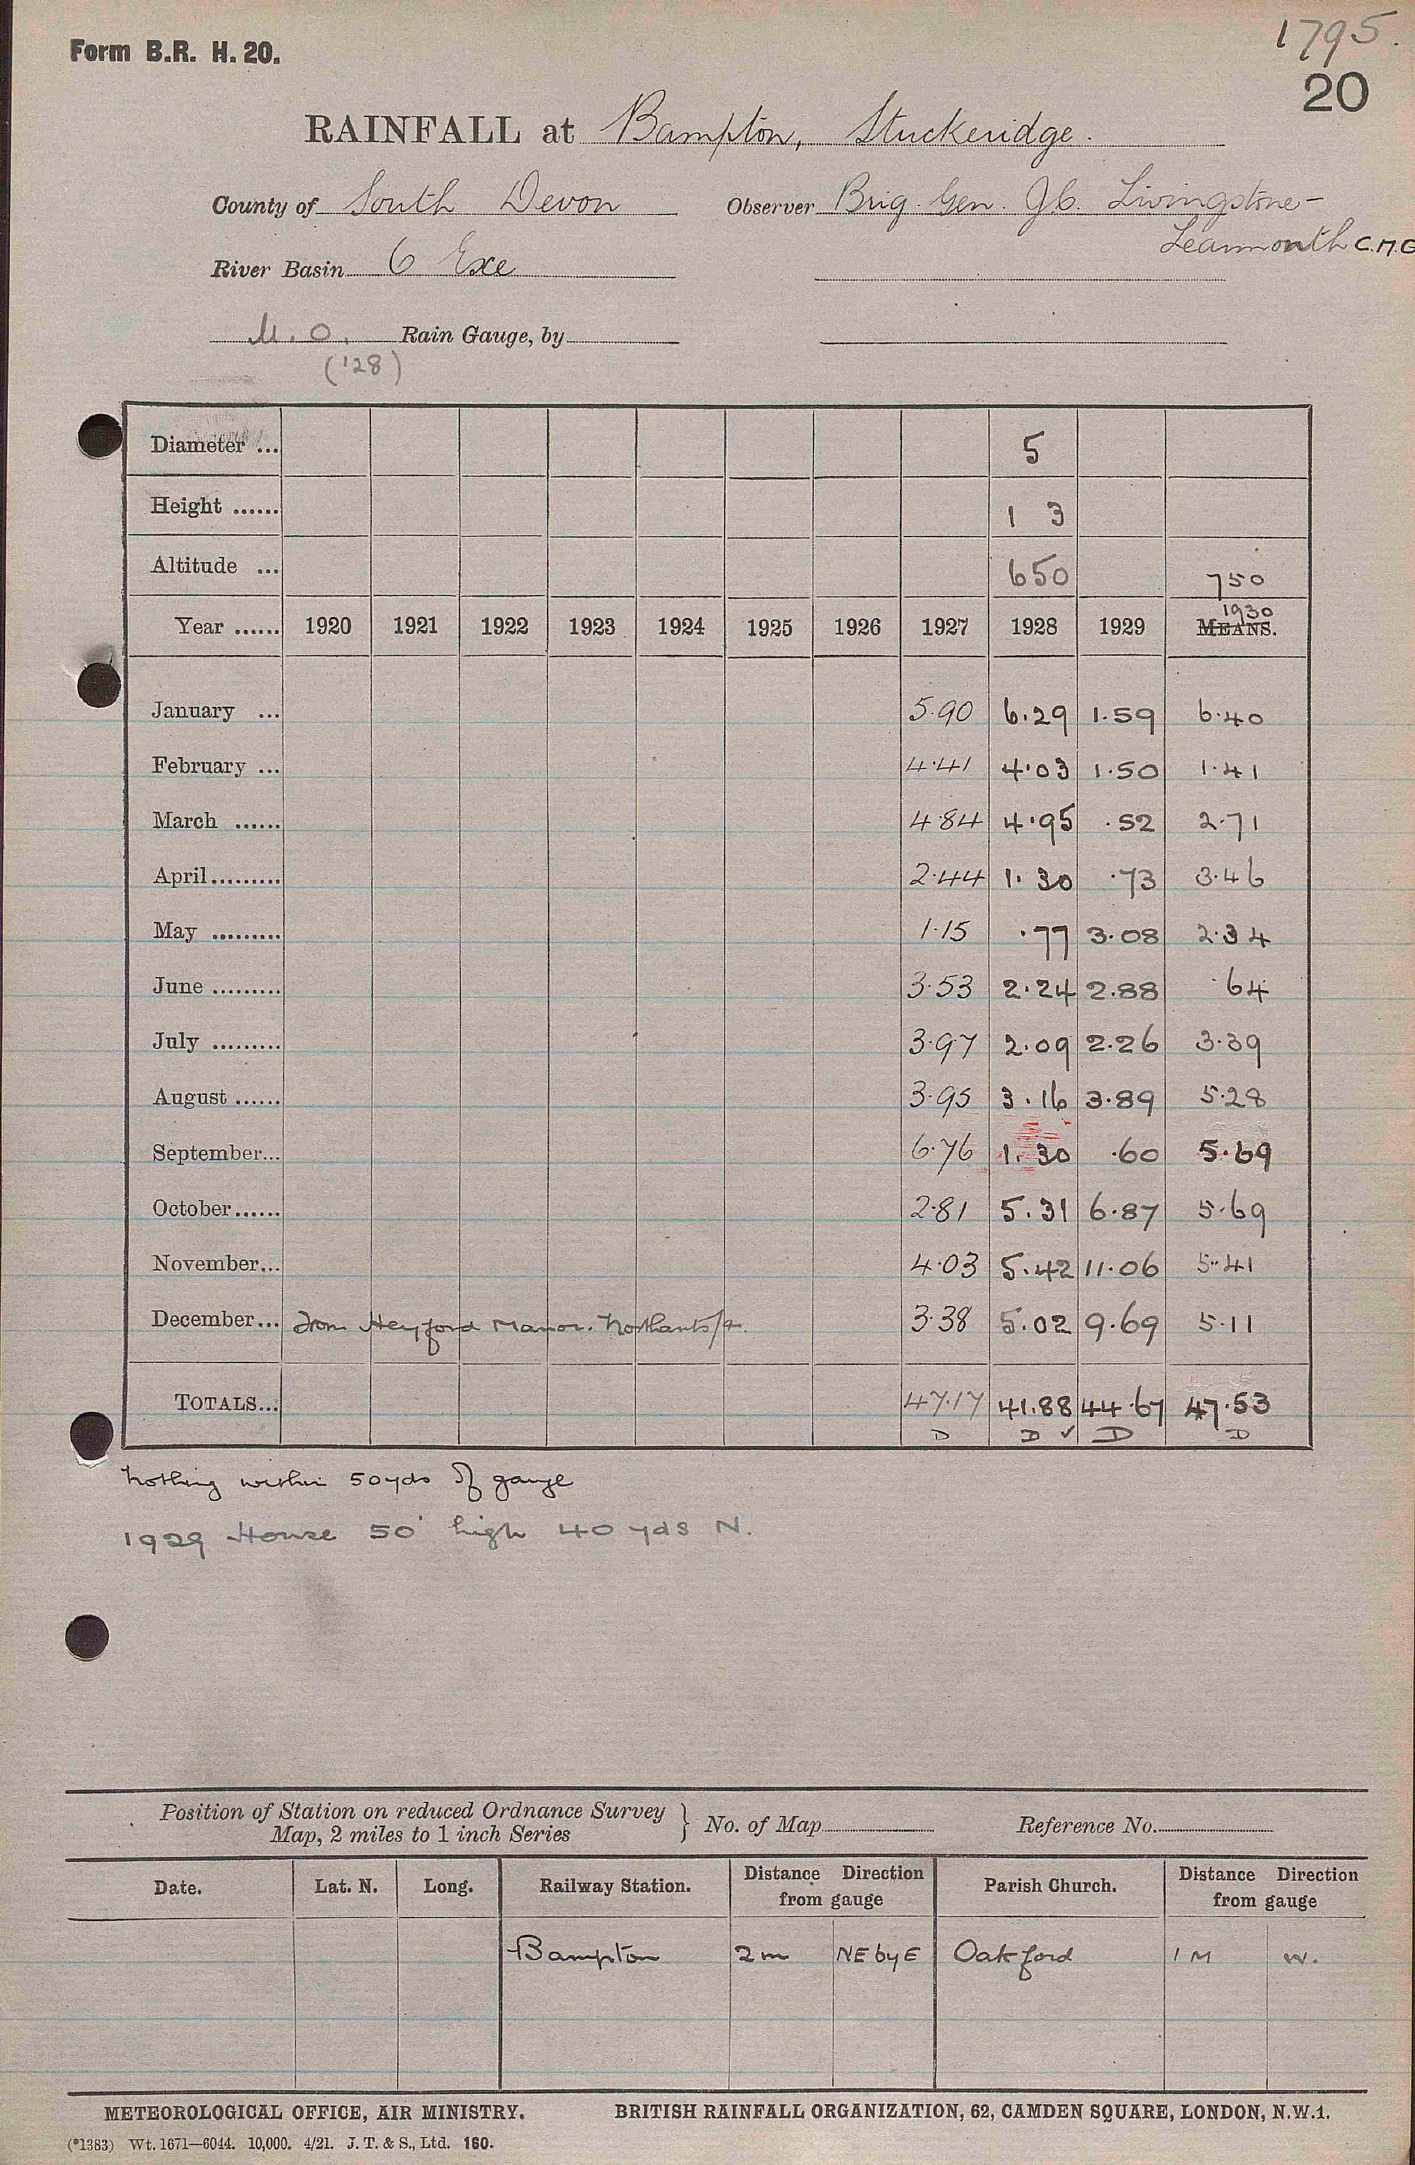 1795.
Form B.R. H. 20.
20
RAINFALL at Bampton, Stuckeridge.
County of South Devon Observer Brig. Gen. J.C. Livingstone-
Learmonth C.M.G
River Basin 6 Exe
M.O. Rain Gauge, by
('28)
Diameter ... 5
Height ...... 1 3
Altitude ... 650 750
Year ...... 1920 1921 1922 1923 1924 1925 1926 1927 1928 1929 MEANS. 1930
January ... 5.90 6.29 1.59 6.40
February ... 4.41 4.03 1.50 1.41
March ...... 4.84 4.95 .52 2.71
April ......... 2.44 1.30 .73 3.46
May ......... 1.15 .77 3.08 2.34
June ......... 3.53 2.24 2.88 .64
July ......... 3.97 2.09 2.26 3.39
August ...... 3.95 3.16 3.89 5.28
September... 6.76 1.30 .60 5.69
October...... 2.81 5.31 6.87 5.69
November... 4.03 5.42 11.06 5.41
December... From Heyford Manor. Northants 3.38 5.02 9.69 5.11
TOTALS... 47.17 41.88 44.67 47.53
D D ✓ D D
Nothing within 50yds of gauge
1929 House 50' high 40 yds N.
Position of Station on reduced Ordnance Survey
Map, 2 miles to 1 inch Series } No. of Map Reference No.
Date. Lat. N. Long. Railway Station. Distance Direction from gauge Parish Church. Distance Direction from gauge
Bampton 2m NE by E Oakford 1 M W.
METEOROLOGICAL OFFICE, AIR MINISTRY. BRITISH RAINFALL ORGANIZATION, 62, CAMDEN SQUARE, LONDON, N.W.1.
(*1383) Wt. 1671—6044. 10,000. 4/21. J. T. & S., Ltd. 160.